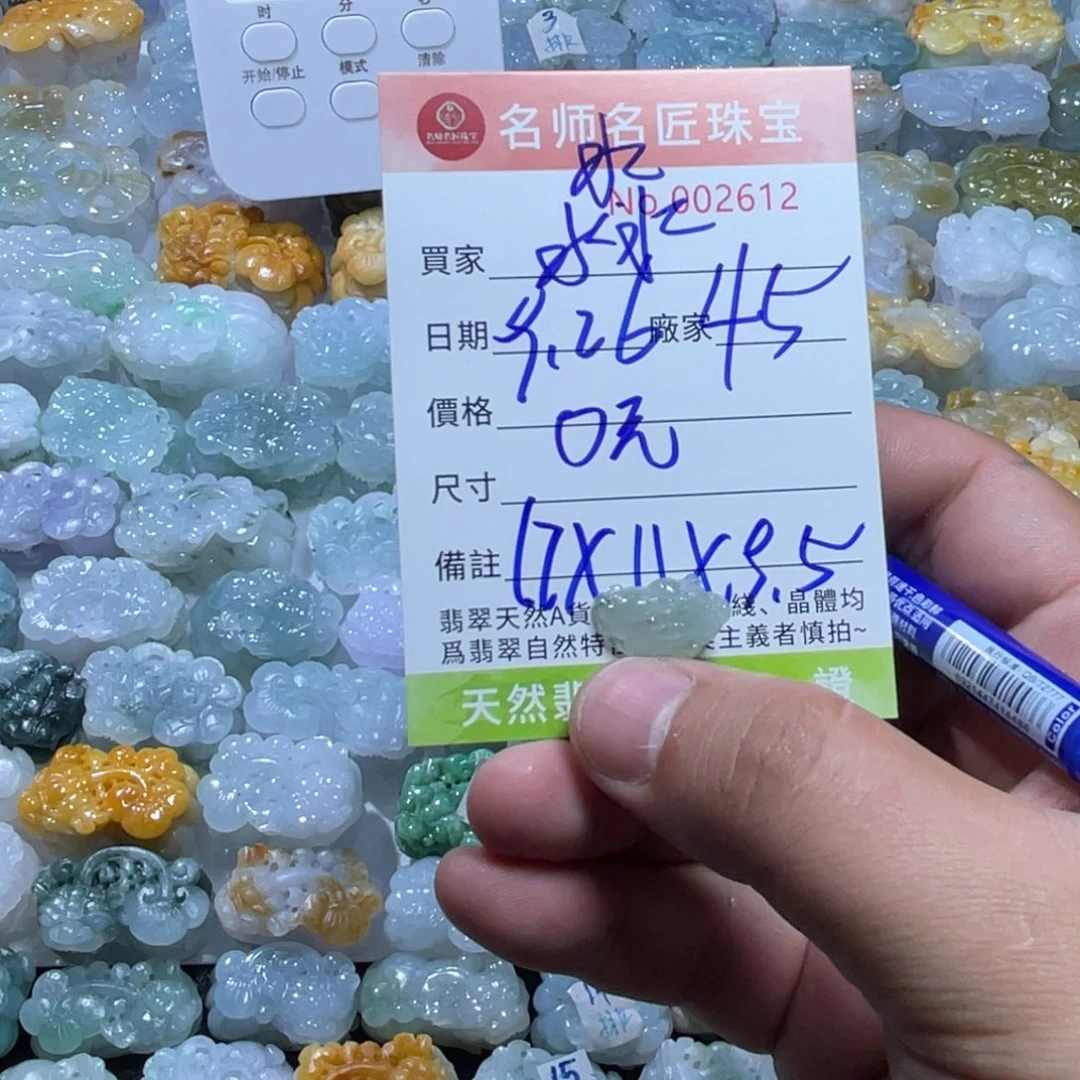 时 分
开始/停止 模式 清除
3
排
名师名匠珠宝
No.002612
買家
日期 9.26 廠家 45
價格 0元
尺寸
備註 17X11X9.5
翡翠天然A貨 綫、晶體均
爲翡翠自然特 主義者慎拍~
天然翡 證
Color
排
15